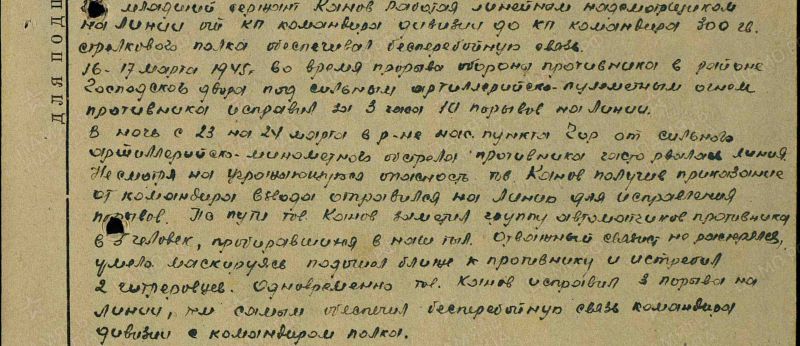 младший сержант Канов работая линейным надсмотрщиком
на линии от КП командира дивизии до КП командира 300 гв.
стрелкового полка обеспечивал бесперебойную связь.
16-17 марта 1945г. во время прорыва обороны противника в районе
Господсков двора под сильным артиллерийско-пулеметным огнем
противника исправил за 3 часа 10 порывов на линии.
В ночь с 23 на 24 марта в р-не нас. пункта Чор от сильного
артиллерийско-минометного обстрела противника часто рвалась линия.
Несмотря на угрожающуюся опасность тов. Канов получив приказание
от командира взвода отправился на линию для исправления
порывов. По пути тов. Канов заметил группу автоматчиков противника
в 5 человек, пробиравшихся в наш тыл. Отважный связист не растерялся,
умело маскируясь подошел ближе к противнику и истребил
2 гитлеровцев. Одновременно тов. Канов исправил 3 порыва на
линии, тем самым обеспечил бесперебойную связь командира
дивизии с командиром полка.
ДЛЯ ПОДШ